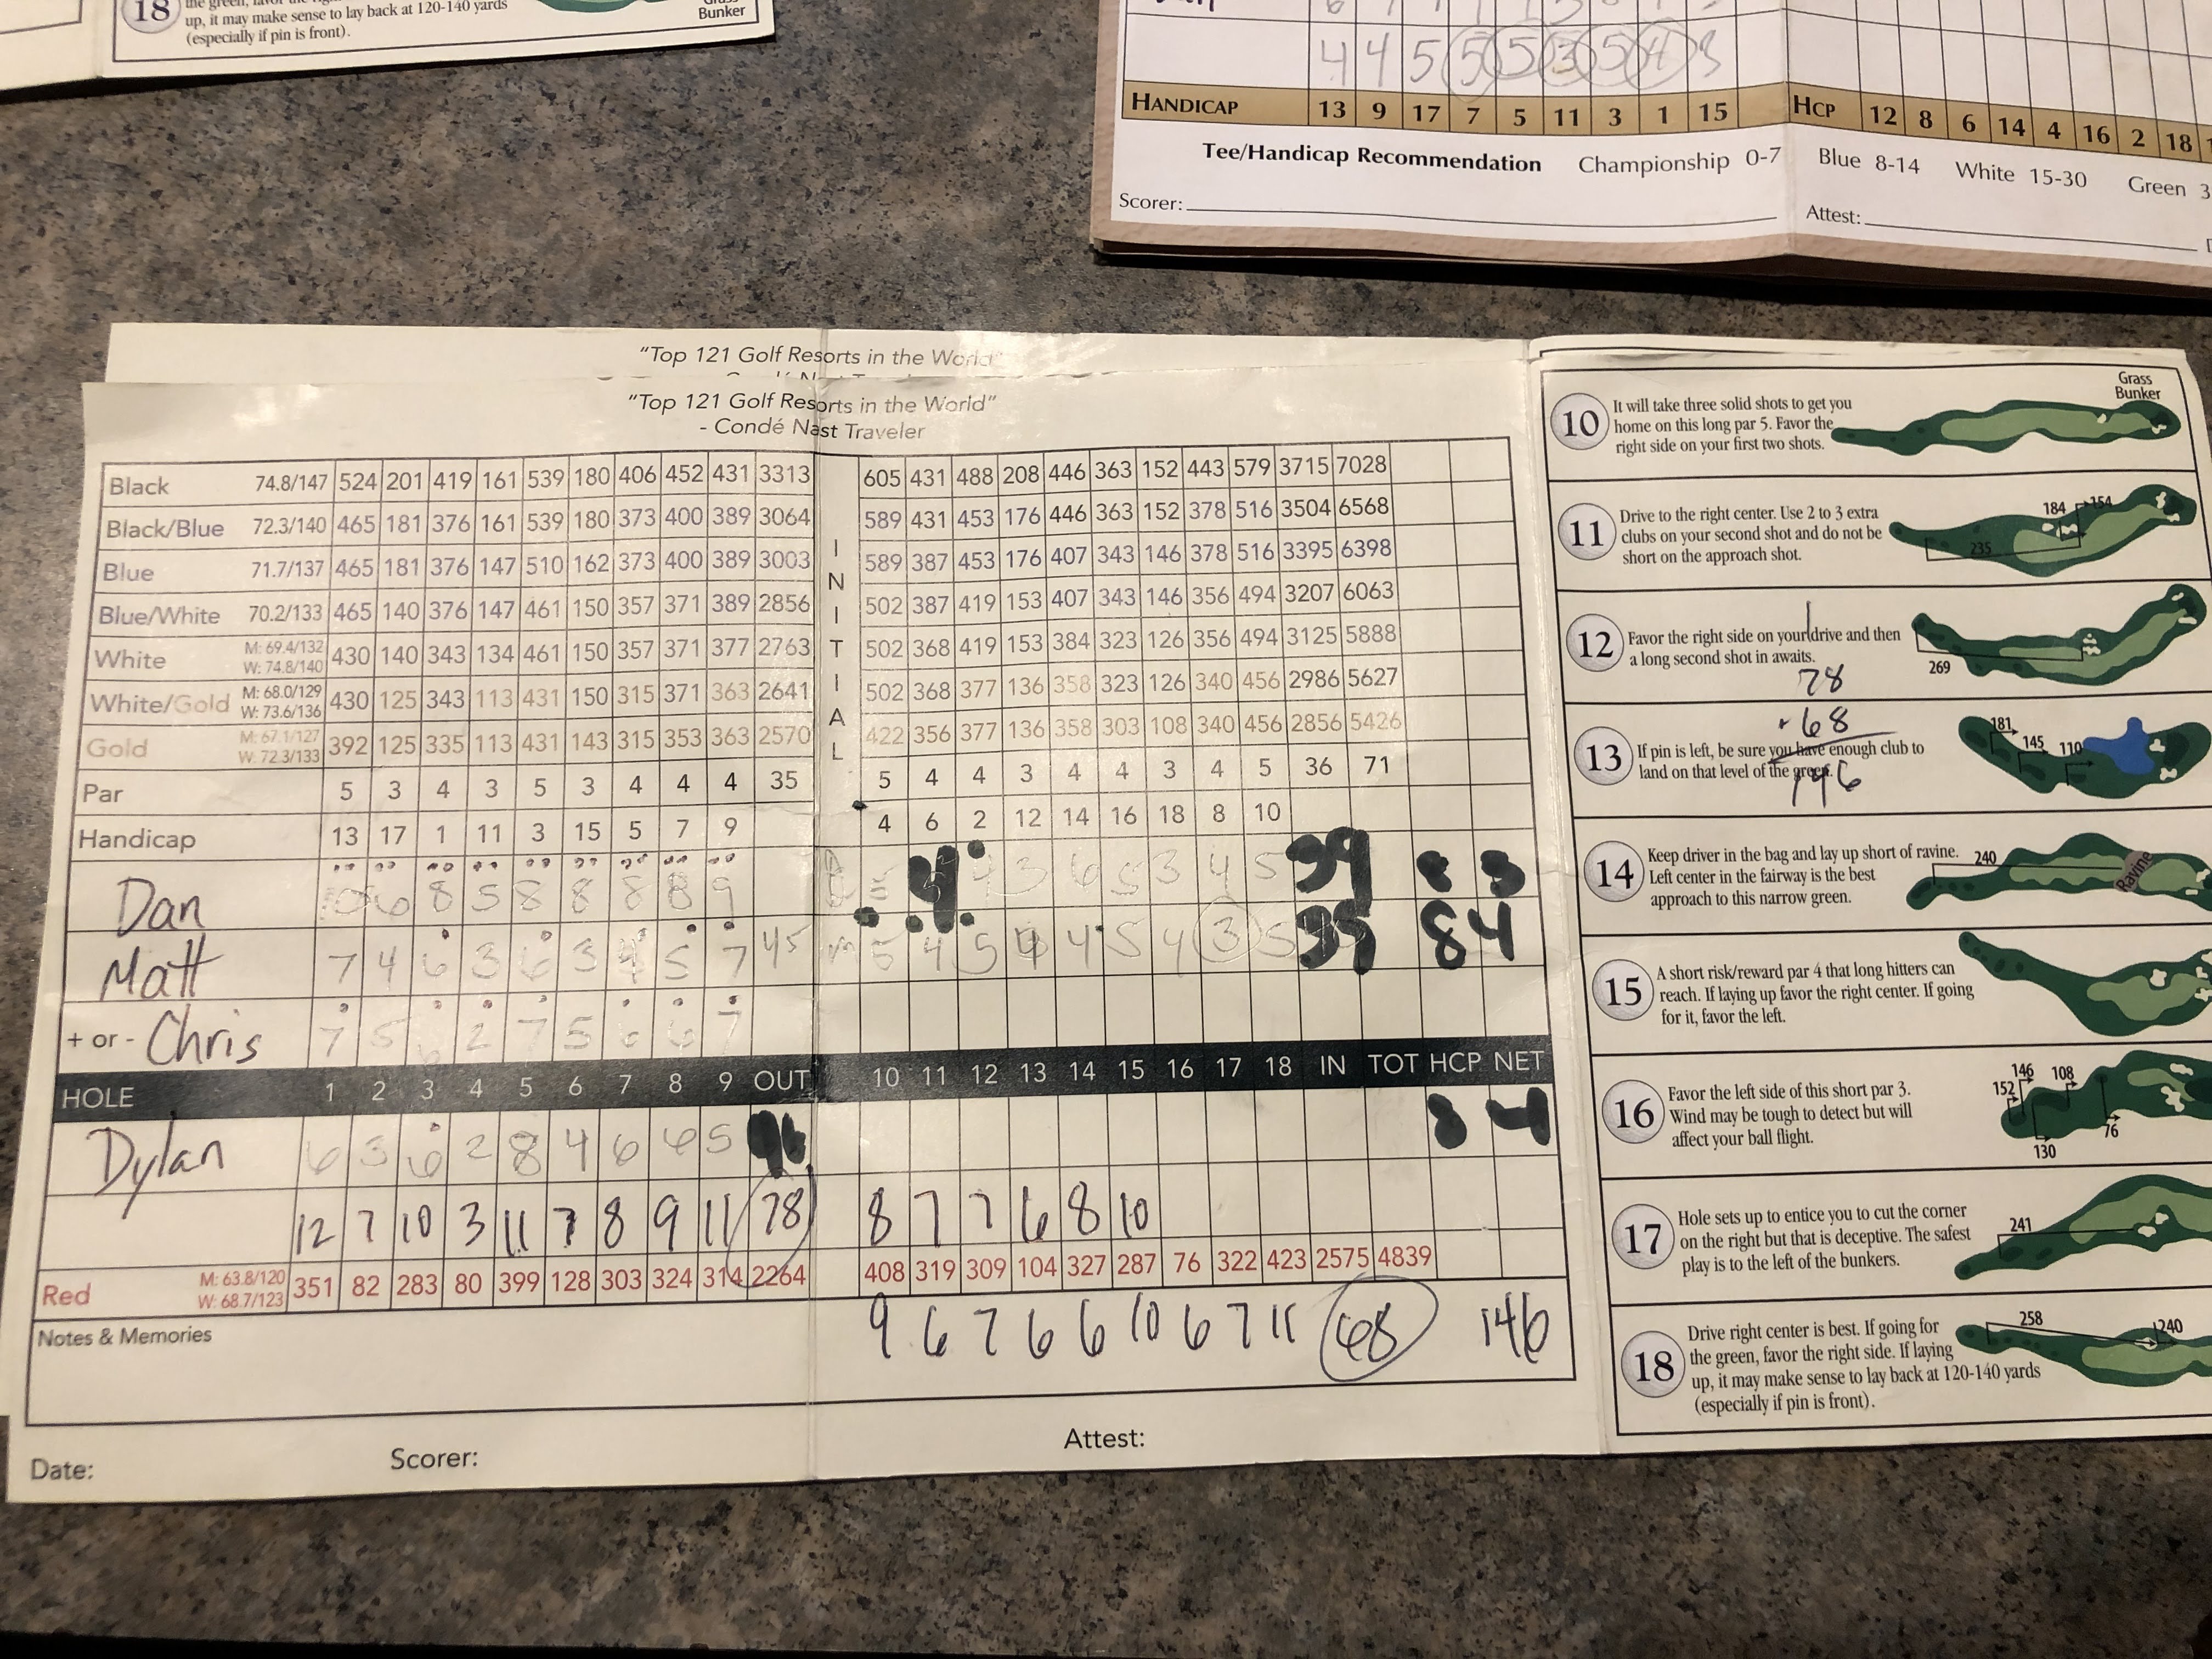 18
the green, favor the right
up, it may make sense to lay back at 120-140 yards
(especially if pin is front).
Grass
Bunker
4 4 5 5 5 3 5 4 3
HANDICAP 13 9 17 7 5 11 3 1 15 HCP 12 8 6 14 4 16 2 18
Tee/Handicap Recommendation Championship 0-7 Blue 8-14 White 15-30 Green 3
Scorer: Attest:
"Top 121 Golf Resorts in the World"
"Top 121 Golf Resorts in the World"
- Condé Nast Traveler
Black 74.8/147 524 201 419 161 539 180 406 452 431 3313 605 431 488 208 446 363 152 443 579 3715 7028
Black/Blue 72.3/140 465 181 376 161 539 180 373 400 389 3064 589 431 453 176 446 363 152 378 516 3504 6568
Blue 71.7/137 465 181 376 147 510 162 373 400 389 3003 589 387 453 176 407 343 146 378 516 3395 6398
Blue/White 70.2/133 465 140 376 147 461 150 357 371 389 2856 502 387 419 153 407 343 146 356 494 3207 6063
White M: 69.4/132 W: 74.8/140 430 140 343 134 461 150 357 371 377 2763 502 368 419 153 384 323 126 356 494 3125 5888
White/Gold M: 68.0/129 W: 73.6/136 430 125 343 113 431 150 315 371 363 2641 502 368 377 136 358 323 126 340 456 2986 5627
Gold M: 67.1/127 W: 72.3/133 392 125 335 113 431 143 315 353 363 2570 422 356 377 136 358 303 108 340 456 2856 5426
INITIAL
Par 5 3 4 3 5 3 4 4 4 35 5 4 4 3 4 4 3 4 5 36 71
Handicap 13 17 1 11 3 15 5 7 9 4 6 2 12 14 16 18 8 10
Dan 6 8 5 8 8 8 8 9 5 4 3 6 5 3 4 5 39 8 3
Matt 7 4 6 3 6 3 4 5 7 45 m 5 4 5 4 4 5 4 3 5 39 84
+ or - Chris 7 5 6 2 7 5 6 6 7
HOLE 1 2 3 4 5 6 7 8 9 OUT 10 11 12 13 14 15 16 17 18 IN TOT HCP NET
Dylan 6 3 6 2 8 4 6 6 5 46 84
12 7 10 3 11 7 8 9 11 78 8 7 7 6 8 10
Red M: 63.8/120 W: 68.7/123 351 82 283 80 399 128 303 324 314 2264 408 319 309 104 327 287 76 322 423 2575 4839
9 6 7 6 6 10 6 7 11 68 146
Notes & Memories
Date: Scorer: Attest:
10 It will take three solid shots to get you
home on this long par 5. Favor the
right side on your first two shots.
Grass
Bunker
11 Drive to the right center. Use 2 to 3 extra
clubs on your second shot and do not be
short on the approach shot.
184 154
235
12 Favor the right side on your drive and then
a long second shot in awaits.
269
1
78
+68
146
13 If pin is left, be sure you have enough club to
land on that level of the green.
181
145
110
14 Keep driver in the bag and lay up short of ravine.
Left center in the fairway is the best
approach to this narrow green.
240
Ravine
15 A short risk/reward par 4 that long hitters can
reach. If laying up favor the right center. If going
for it, favor the left.
16 Favor the left side of this short par 3.
Wind may be tough to detect but will
affect your ball flight.
146
152
108
76
130
17 Hole sets up to entice you to cut the corner
on the right but that is deceptive. The safest
play is to the left of the bunkers.
241
18 Drive right center is best. If going for
the green, favor the right side. If laying
up, it may make sense to lay back at 120-140 yards
(especially if pin is front).
258
240